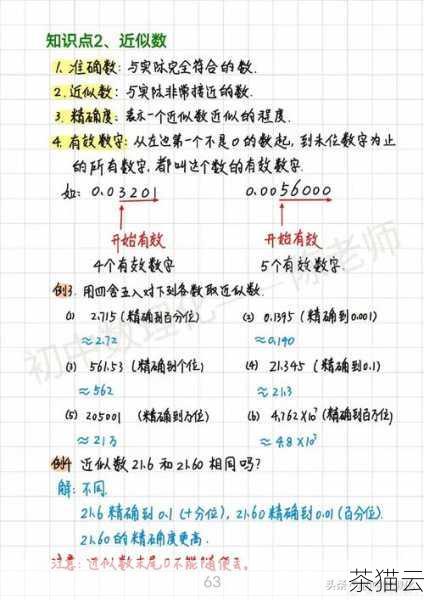 知识点2、近似数
1. 准确数: 与实际完全符合的数.
2. 近似数: 与实际非常接近的数.
3. 精确度: 表示一个近似数近似的程度.
4. 有效数字: 从左边第一个不是0的数起, 到末位数字为止
的所有数字, 都叫这个数的有效数字.
如: 0.03201 0.0056000
开始有效 开始有效
4个有效数字 5个有效数字
例3. 用四舍五入对下列各数取近似数.
(1) 2.715 (精确到百分位) (2) 0.1395 (精确到0.001)
≈2.72 ≈0.140
(3) 561.53 (精确到个位) (4) 21.345 (精确到0.1)
≈562 ≈21.3
(5) 205001 (精确到万位) (6) 4.762×10⁷ (精确到百万位)
≈21万 ≈4.8×10⁷
例4 近似数21.6和21.60相同吗?
解: 不同.
21.6精确到0.1 (十分位), 21.60精确到0.01 (百分位).
21.60的精确度更高.
注意: 近似数末尾0不能随便丢。
63
初中数理化
老师
头条
茶猫云